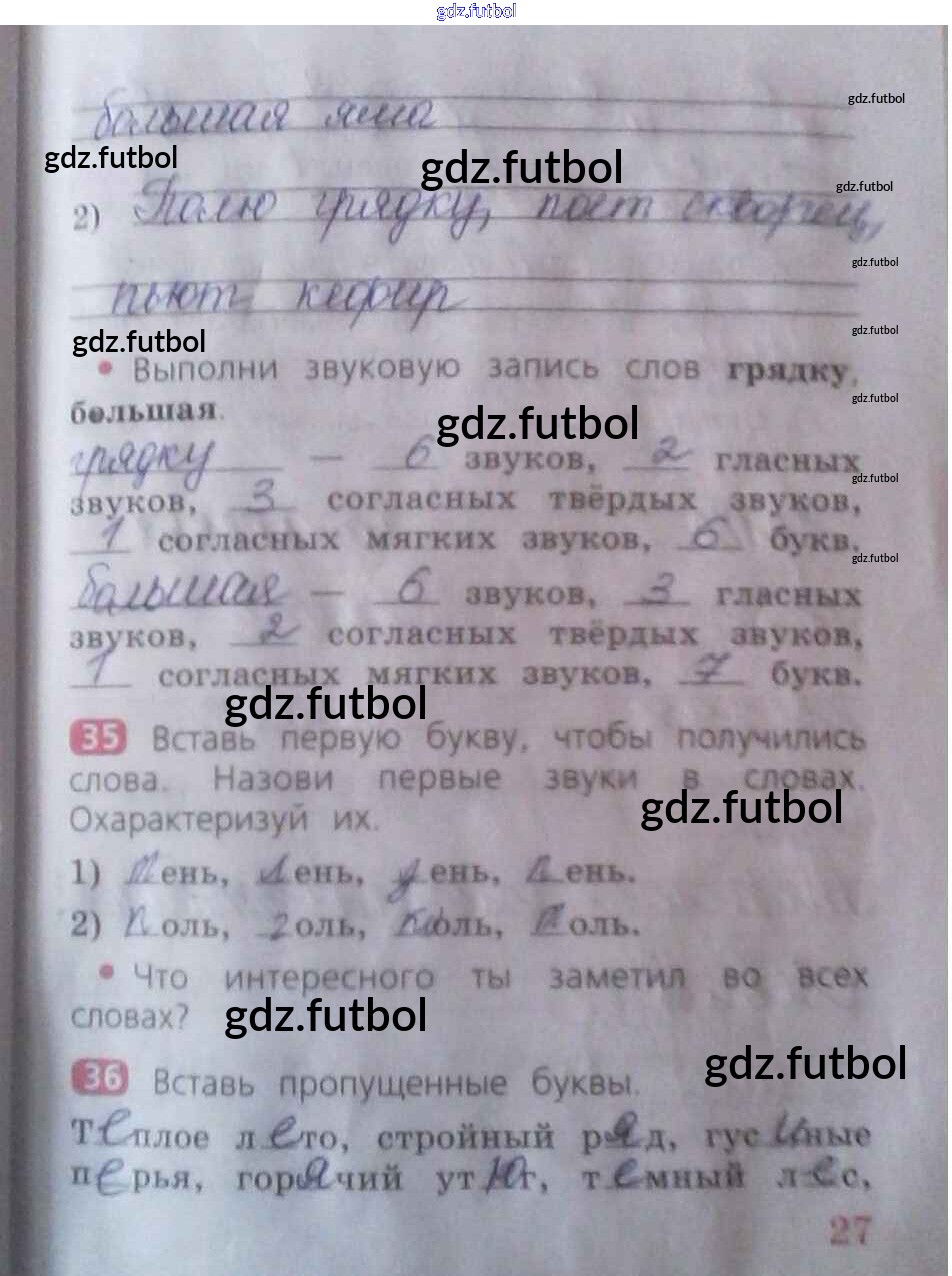 gdz.futbol
большая яма
gdz.futbol
gdz.futbol
gdz.futbol
gdz.futbol
2) Полю грядку, поёт скворец,
gdz.futbol
пьют кефир
gdz.futbol
gdz.futbol
• Выполни звуковую запись слов грядку,
большая.
gdz.futbol
gdz.futbol
грядку — 6 звуков, 2 гласных
gdz.futbol
звуков, 3 согласных твёрдых звуков,
1 согласных мягких звуков, 6 букв.
gdz.futbol
большая — 6 звуков, 3 гласных
звуков, 2 согласных твёрдых звуков,
1 согласных мягких звуков, 7 букв.
gdz.futbol
35 Вставь первую букву, чтобы получились
слова. Назови первые звуки в словах.
gdz.futbol
Охарактеризуй их.
1) Пень, лень, день, ень.
2) Поль, 2оль, оль, оль.
• Что интересного ты заметил во всех
словах?
gdz.futbol
gdz.futbol
36 Вставь пропущенные буквы.
Теплое лето, стройный ряд, гусиные
перья, горячий утюг, темный лес,
27